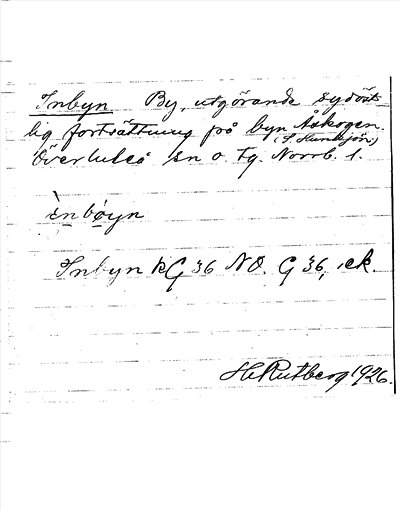 Inbyn By, utgörande sydöst-
lig fortsättning på byn Åskogen.
(S. Sunderbyn)
Överluleå sn o. tg. Norrb. l.
ènbo̱yn
Inbyn kG 36 NO. G 36, ek.
H. Rutberg 1926.